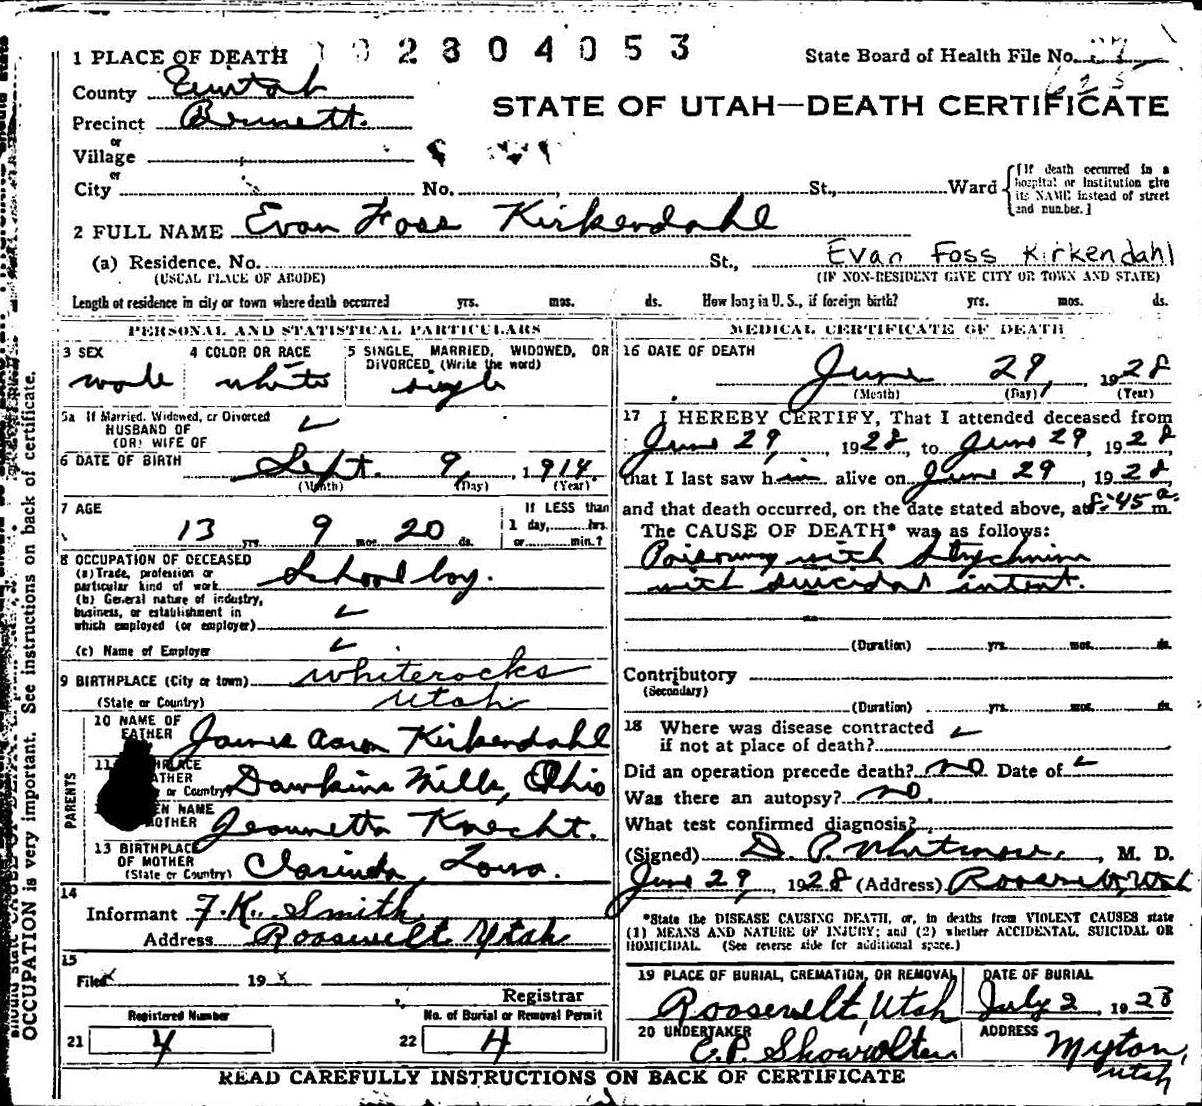 1 PLACE OF DEATH 102804053 State Board of Health File No.
County Uintah
STATE OF UTAH—DEATH CERTIFICATE
Precinct Bennett.
or
Village
or
City No. St., Ward
{If death occurred in a hospital or institution give its NAME instead of street and number.}
2 FULL NAME Evan Foss Kirkendahl
(a) Residence. No. St., Evan Foss Kirkendahl
(USUAL PLACE OF ABODE) (IF NON-RESIDENT GIVE CITY OR TOWN AND STATE)
Length of residence in city or town where death occurred yrs. mos. ds. How long in U. S., if foreign birth? yrs. mos. ds.
PERSONAL AND STATISTICAL PARTICULARS
3 SEX 4 COLOR OR RACE 5 SINGLE, MARRIED, WIDOWED, OR DIVORCED (Write the word)
male white single
5a If Married, Widowed, or Divorced
HUSBAND OF
(OR) WIFE OF
6 DATE OF BIRTH Sept. 9, 1914
(Month) (Day) (Year)
7 AGE
13 yrs. 9 mos. 20 ds.
If LESS than
1 day, hrs.
or min.?
8 OCCUPATION OF DECEASED
(a) Trade, profession or
particular kind of work School boy.
(b) General nature of industry,
business, or establishment in
which employed (or employer)
(c) Name of Employer
9 BIRTHPLACE (City or town) Whiterocks
(State or Country) Utah
PARENTS
10 NAME OF
FATHER James Aaron Kirkendahl
11 BIRTHPLACE
FATHER
or Country) Dawkins Mills, Ohio
EN NAME
MOTHER Jeannetta Knecht.
13 BIRTHPLACE
OF MOTHER
(State or Country) Clarinda, Iowa.
14
Informant F. K. Smith
Address Roosevelt Utah
15
Filed 19
Registrar
Registered Number No. of Burial or Removal Permit
21 4 22 4
MEDICAL CERTIFICATE OF DEATH
16 DATE OF DEATH
June 29, 1928
(Month) (Day) (Year)
17 I HEREBY CERTIFY, That I attended deceased from
June 29, 1928, to June 29, 1928,
that I last saw him alive on June 29 1928,
and that death occurred, on the date stated above, at 8:45 a. m.
The CAUSE OF DEATH* was as follows:
Poisoning with Strychnine
with suicidal intent.
(Duration) yrs. mos. ds.
Contributory
(Secondary)
(Duration) yrs. mos. ds.
18 Where was disease contracted
if not at place of death?
Did an operation precede death? no Date of
Was there an autopsy? no.
What test confirmed diagnosis?
(Signed) D. P. Whitmore, M. D.
June 29, 1928 (Address) Roosevelt, Utah
*State the DISEASE CAUSING DEATH, or, in deaths from VIOLENT CAUSES state
(1) MEANS AND NATURE OF INJURY; and (2) whether ACCIDENTAL, SUICIDAL OR
HOMICIDAL. (See reverse side for additional space.)
19 PLACE OF BURIAL, CREMATION, OR REMOVAL DATE OF BURIAL
Roosevelt, Utah July 2 1928
20 UNDERTAKER ADDRESS
E. P. Myton, Utah
READ CAREFULLY INSTRUCTIONS ON BACK OF CERTIFICATE
OCCUPATION is very important. See instructions on back of certificate.